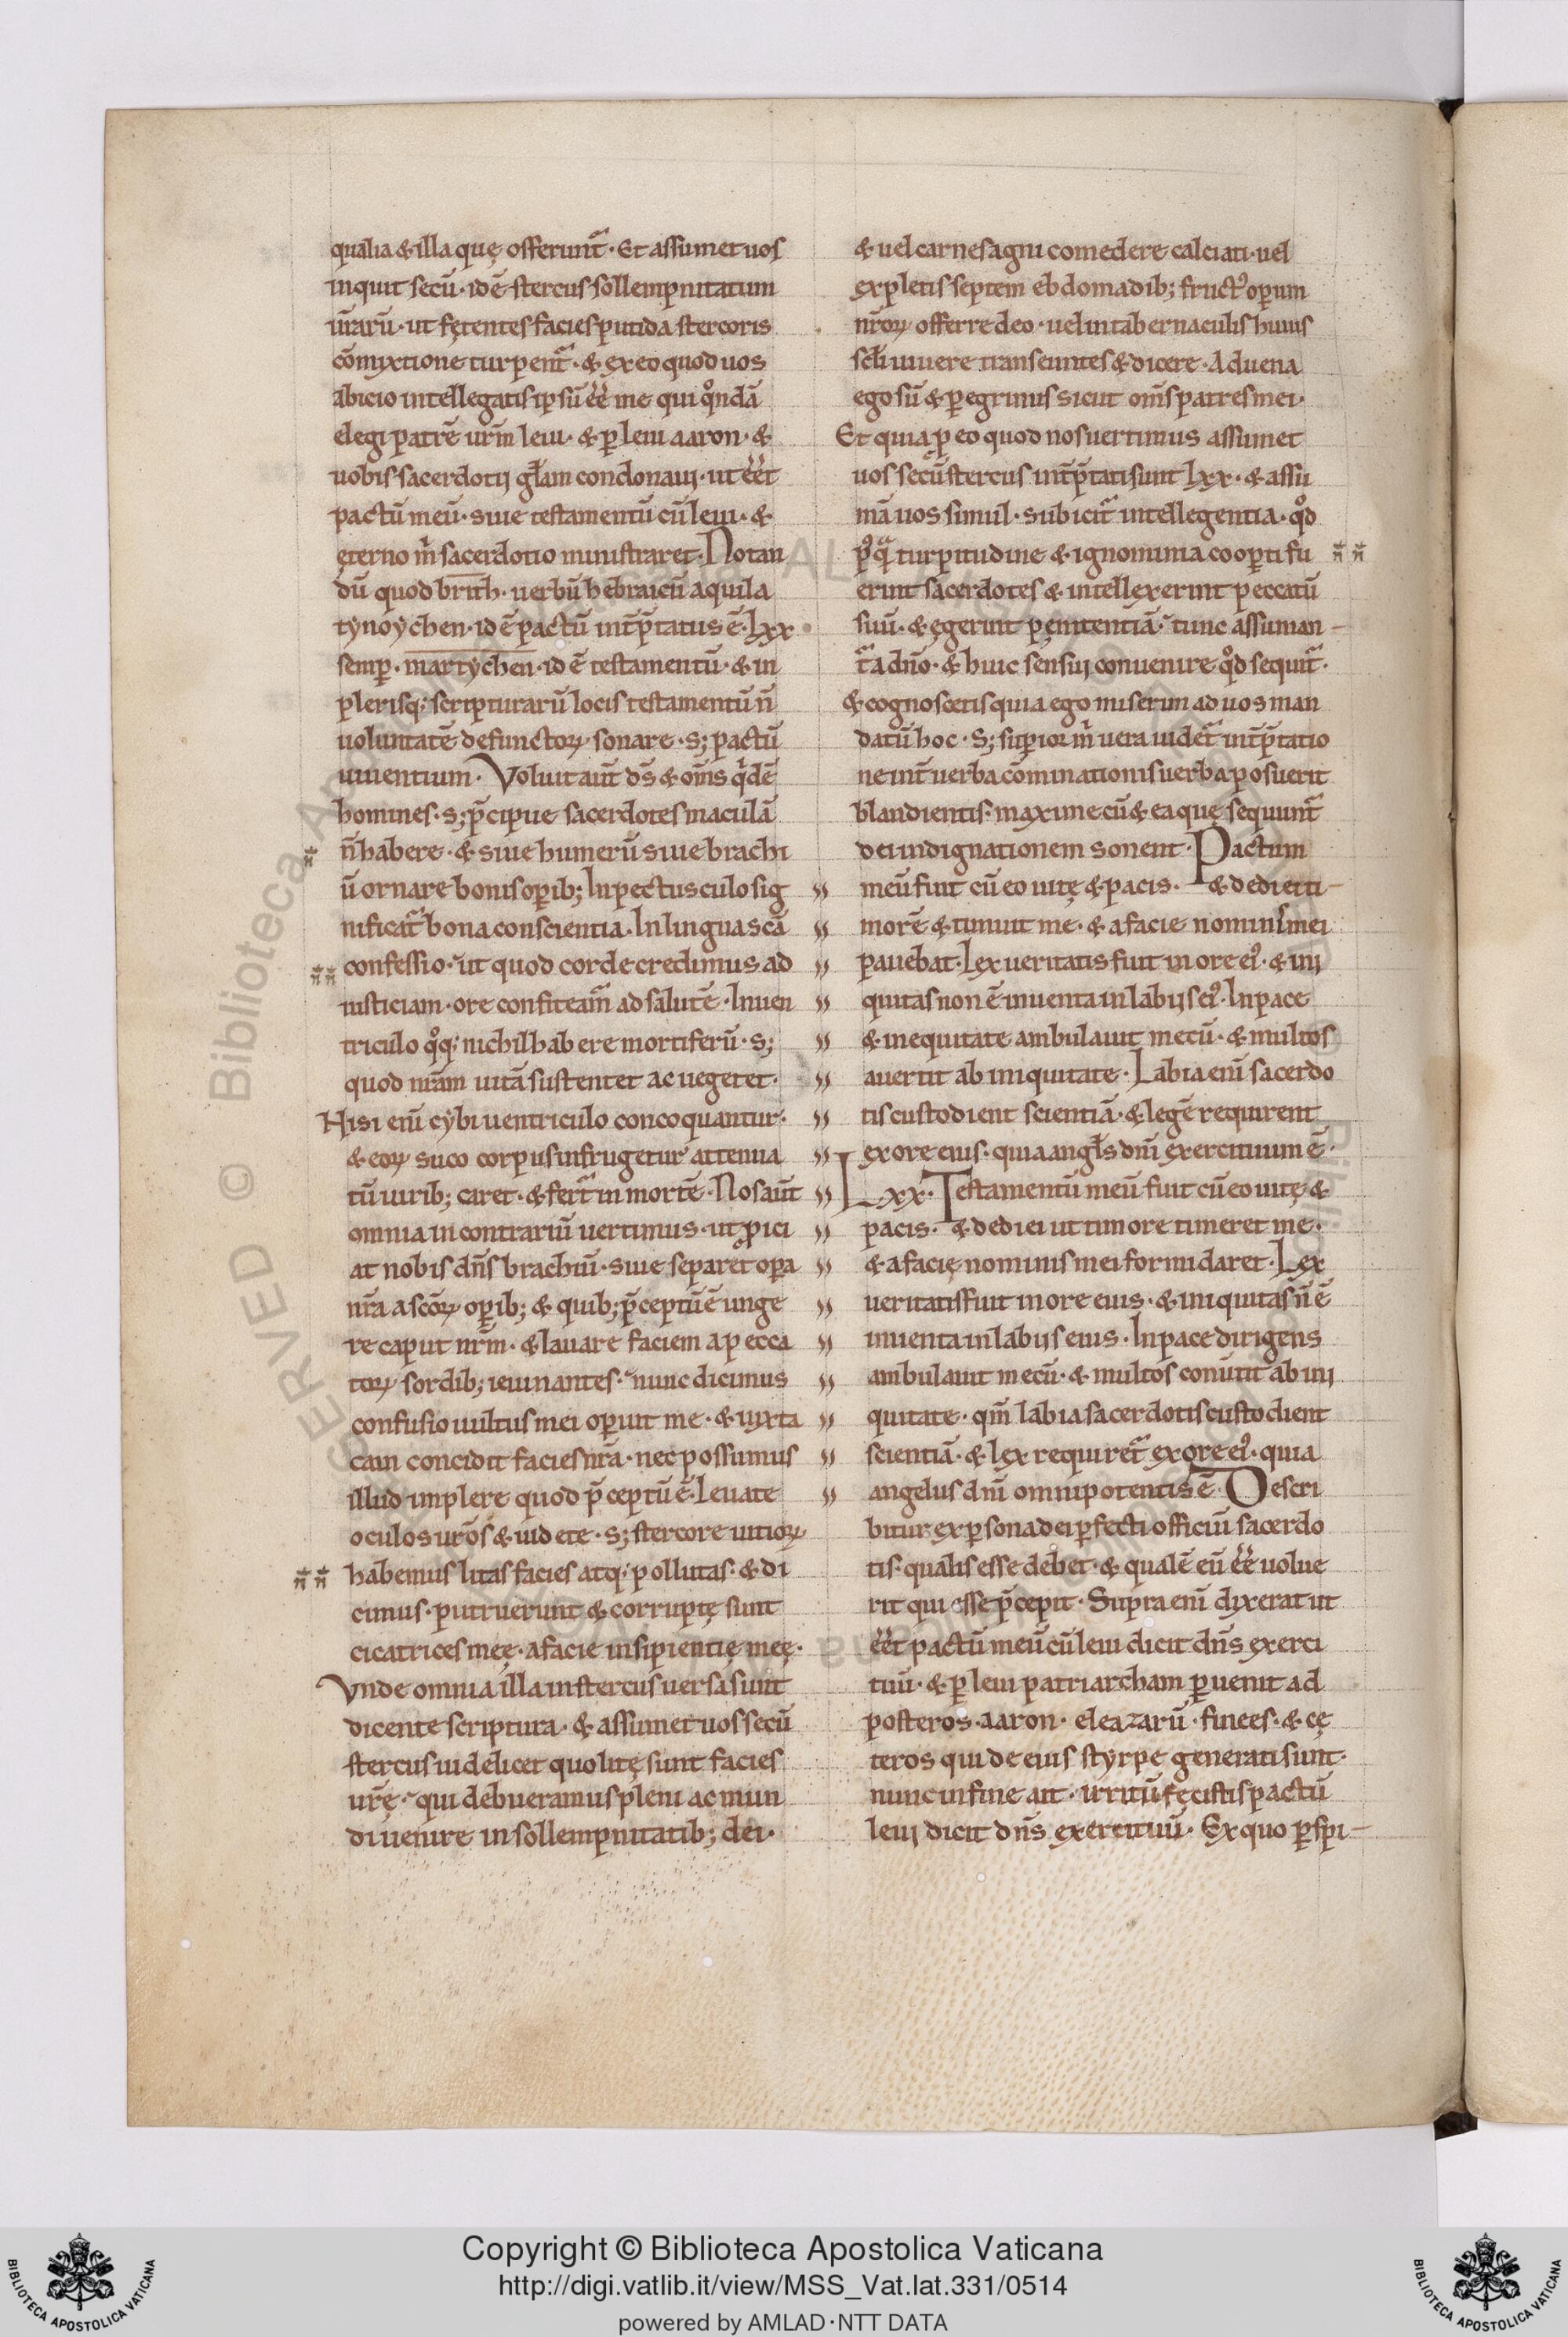 qualia & illa quę offerunt᷑. Et assumet uos
inquit secū. id ē stercus sollempnitatum
ur̄arū. ut fętentes facies putida stercoris
cōmyxtione turpent᷑. & ex eo quod uos
abicio intellegatis ipsū ēē me qui qͦndā
elegi patrē ur̄m leui. & ꝑ leui aaron. &
uobis sacerdotij gl̄am condonaui. ut ēēt
pactū meū. siue testamentū cū leui. &
ęterno m̄ sacerdotio ministraret. Notan
dū quod brith. uerbū hebraicū aquila
tynoychen. id ē pactū int̄p̄tatus ē. Lxx
semꝑ. martychen. id ē testamentū. & in
plerisq; scripturarū locis testamentū n̄
uoluntatē defunctoꝝ sonare. s; pactū
uiuentium. Voluit aūt ds̄ & om̄s qͥdē
homines. s; p̄cipue sacerdotes maculā
n̄ habere. & siue humerū siue brachi
ū ornare bonis oꝑib; In pectusculo sig
nificat᷑ bona conscientia. In lingua scā
confessio. ut quod corde credimus ad
iusticiam. ore confiteam᷑ ad salutē. In uen
triculo qͦq; nichil habere mortiferū. s;
quod nr̄am uitā sustentet ac uegetet.
Nisi eni̅ cybi uentriculo concoquantur.
& eoꝝ suco corpus infrugetur attenua
tū uirib; caret. & fert᷑ in mortē. Nos aūt
omnia in contrariū uertimus. ut ꝓici
at nobis dn̄s brachiū. siue separet oꝑa
nr̄a a scōꝝ oꝑib; & quib; p̄ceptū ē unge
re caput nr̄m. & lauare faciem a pecca
toꝝ sordib; ieiunantes. nunc dicimus
confusio uultus mei oꝑuit me. & iuxta
cain concidit facies nr̄a. nec possumus
illud implere quod p̄ceptū ē. Leuate
oculos ur̄os & uidete. s; stercore uitioꝝ
habemus litas facies atq; pollutas. & di
cimus. putruerunt & corruptę sunt
cicatrices meę. a facie insipientię meę.
Vnde omnia illa in stercus uersa sunt
dicente scriptura. & assumet uos secū
stercus uidelicet quo litę sunt facies
ur̄ę. qui debueramus pleni ac mun
di uenire in sollempnitatib; dei.
& uel carnes agni comedere calciati. uel
expletis septem ebdomadib; fructꝰ oꝑum
nr̄oꝝ offerre deo. uel in tabernaculis huius
scl̄i uiuere transeuntes & dicere. Aduena
ego sū & ꝑegrinus sicut om̄s patres mei.
Et quia ꝓ eo quod nos uertimus assumet
uos secū stercus int̄p̄tati sunt Lxx. & assu
mā uos simul. subicit᷑ intellegentia. qͦd
pꝰqᷓ turpitudine & ignominia cooperti fu
erint sacerdotes & intellexerint peccatū
suū. & ęgerint pęnitentiā. tunc assuman
t᷑ a dn̄o. & huic sensui conuenire qͦd sequit᷑.
& cognoscetis quia ego miserim ad uos man
datū hoc. S; superior m̄ uera uidet᷑ int̄p̄tatio
ne int̄ uerba cōminationis uerba posuerit
blandientis. maxime cū & ea quę sequunt᷑
dei indignationem sonent. Pactum
meū fuit cū eo uitę & pacis. & dedi ei ti
morē & timuit me. & a facie nominis mei
pauebat. Lex ueritatis fuit in ore eiꝰ. & ini
quitas non ē inuenta in labijs eiꝰ. In pace
& in equitate ambulauit mecū. & multos
auertit ab iniquitate. Labia eni̅ sacerdo
tis custodient scientiā. & legē requirent
ex ore eius. quia angl̄s dn̄i exercituum ē.
Lxx. Testamentū meū fuit cū eo uitę &
pacis. & dedi ei ut timore timeret me.
& a facię nominis mei formidaret. Lex
ueritatis fuit in ore eius. & iniquitas n̄ ē
inuenta in labijs eius. In pace dirigens
ambulauit mecū. & multos conūtit ab ini
quitate. qm̄ labia sacerdotis custodient
scientiā. & lex requiret᷑ ex ore eiꝰ. quia
angelus dn̄i omnipotentis ē. Descri
bitur ex ꝑsona dei ꝑfecti officiū sacerdo
tis. qualis esse debet. & qualē eū ēē uolue
rit qui esse p̄cepit. Supra eni̅ dixerat ut
ēēt pactū meū cū leui dicit dn̄s exerci
tuū. & ꝑ leui patriarcham ꝑuenit ad
posteros. aaron. eleazarū. finees. & cę
teros qui de eius styrpe generati sunt.
nunc in fine ait. irritū fęcistis pactū
leuij dicit dn̄s exercituū. Ex quo ꝑspi
Copyright © Biblioteca Apostolica Vaticana
http://digi.vatlib.it/view/MSS_Vat.lat.331/0514
powered by AMLAD·NTT DATA
BIBLIOTECA APOSTOLICA VATICANA
BIBLIOTECA APOSTOLICA VATICANA